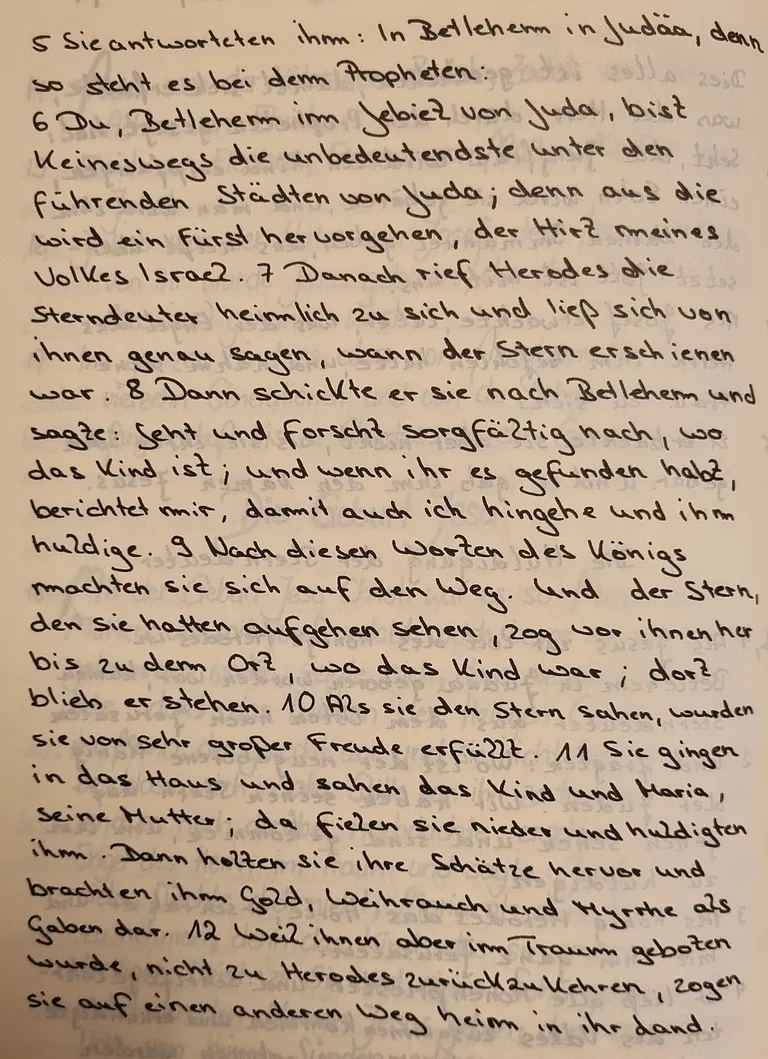 5 Sie antworteten ihm: In Betlehem in Judäa, denn
so steht es bei dem Propheten:
6 Du, Betlehem im Gebiet von Juda, bist
keineswegs die unbedeutendste unter den
führenden Städten von Juda; denn aus die
wird ein Fürst hervorgehen, der Hirt meines
Volkes Israel. 7 Danach rief Herodes die
Sterndeuter heimlich zu sich und ließ sich von
ihnen genau sagen, wann der Stern erschienen
war. 8 Dann schickte er sie nach Betlehem und
sagte: Geht und forscht sorgfältig nach, wo
das Kind ist; und wenn ihr es gefunden habt,
berichtet mir, damit auch ich hingehe und ihm
huldige. 9 Nach diesen Worten des Königs
machten sie sich auf den Weg. Und der Stern,
den sie hatten aufgehen sehen, zog vor ihnen her
bis zu dem Ort, wo das Kind war; dort
blieb er stehen. 10 Als sie den Stern sahen, wurden
sie von sehr großer Freude erfüllt. 11 Sie gingen
in das Haus und sahen das Kind und Maria,
seine Mutter; da fielen sie nieder und huldigten
ihm. Dann holten sie ihre Schätze hervor und
brachten ihm Gold, Weihrauch und Myrrhe als
Gaben dar. 12 Weil ihnen aber im Traum geboten
wurde, nicht zu Herodes zurückzukehren, zogen
sie auf einen anderen Weg heim in ihr Land.